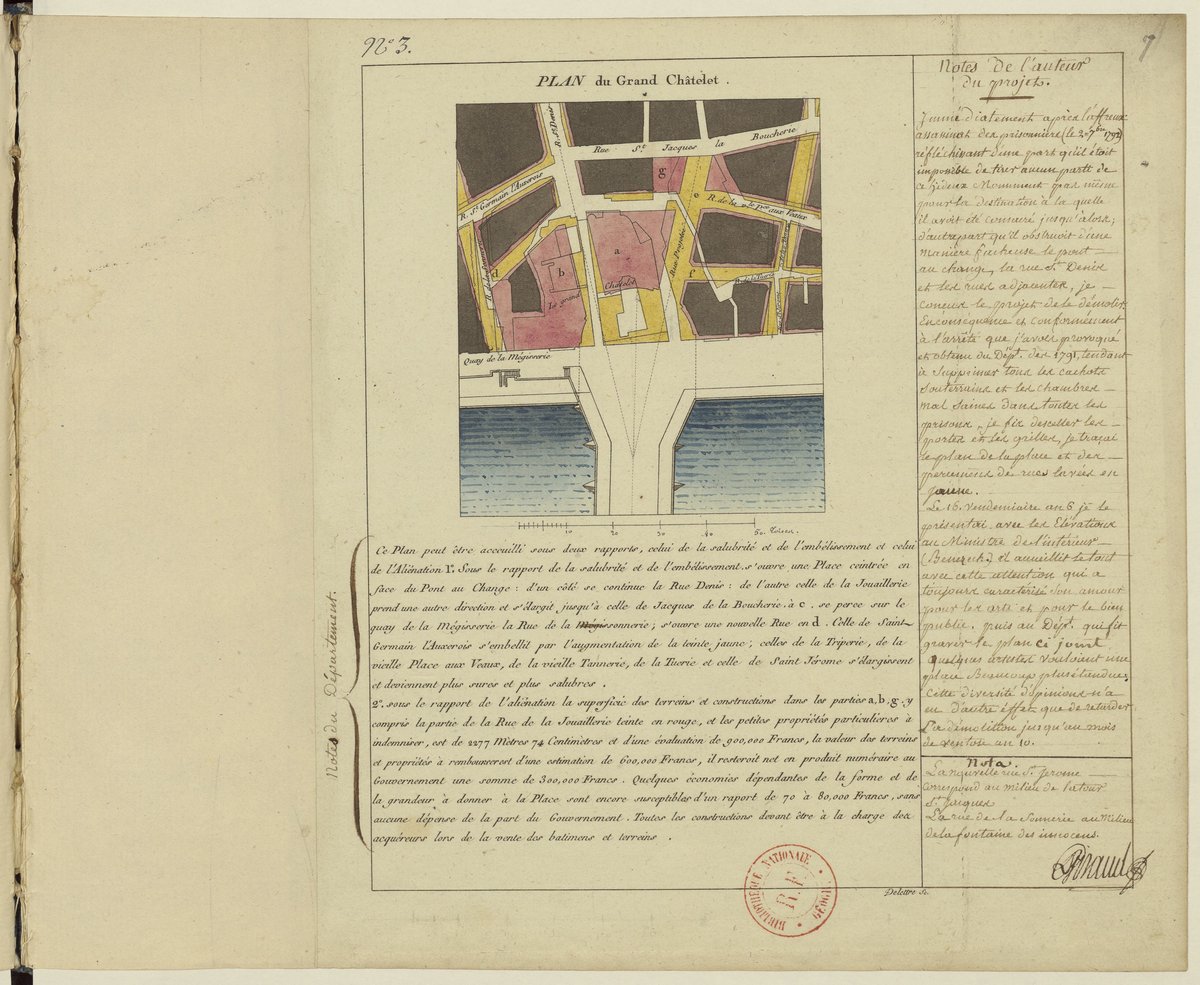 N.o 3.
7
PLAN du Grand Châtelet .
R. St. Denis
Rue St. Jacques la Boucherie
R. St. Germain l'Auxerois
g
e
R. de la vle. pce. aux Veaux
Rue Projettée
a
b
d
f
Le grand Châtelet
Quay de la Mégisserie
10 20 30 40 50. Toises.
Notes du Département.
Ce Plan peut être acceuilli sous deux rapports, celui de la salubrité et de l'embélissement et celui
de l'Aliénation 1.o Sous le rapport de la salubrité et de l'embélissement, s'ouvre une Place ceintrée en
face du Pont au Change : d'un côté se continue la Rue Denis : de l'autre celle de la Jouaillerie
prend une autre direction et s'élargit, jusqu'à celle de Jacques de la Boucherie. à c . se perce sur le
quay de la Mégisserie la Rue de la Mégissonnerie ; s'ouvre une nouvelle Rue en d . Celle de Saint-
Germain l'Auxerois s'embellit par l'augmentation de la teinte jaune ; celles de la Triperie, de la
vieille Place aux Veaux, de la vieille Tannerie, de la Tuerie et celle de Saint Jérome s'élargissent
et deviennent plus sures et plus salubres .
2.o sous le rapport de l'aliénation la superficie des terreins et constructions dans les parties a, b, g . y
compris la partie de la Rue de la Jouaillerie teinte en rouge, et les petites propriétés particulieres à
indemniser, est de 2277 Mètres 74 Centimetres et d'une évaluation de 900,000 Francs, la valeur des terreins
et propriétés à rembourcerest d'une estimation de 600,000 Francs, il resteroit net en produit numéraire au
Gouvernement une somme de 300,000 Francs . Quelques économies dépendantes de la forme et de
la grandeur à donner à la Place sont encore susceptibles d'un raport de 70 à 80,000 Francs, sans
aucune dépense de la part du Gouvernement . Toutes les constructions devant être à la charge des
acquéreurs lors de la vente des batimens et terreins .
Notes de l'auteur
du projet.
Immédiatement après l'affreux
assasinat des prisonniers (le 2. 7bre 1792)
réfléchissant d'une part qu'il étoit
imposible de tirer aucun parti de
ce hideux Monument pas même
pour la destination à la quelle
il avoit été consacré jusqu'alors;
d'autre part qu'il obstruoit d'une
maniere facheuse le pont
au change, la rue St Denis
et les rues adjacentes, je
conçus le projet de le démolir
En conséquence et conformément
à l'arrêté que j'avois provoqué
et obtenu du Dépt. dès 1791, tendant
à Supprimer tous les cachots
Souterrains et les chambres
mal saines dans toutes les
prisons, je fis desceller les
portes et les grilles, je traçai
le plan de la place et des
percemens de rues lavées en
jaune.
Le 16. vendemiaire an 6 je le
présentai avec les Elévations
au Ministre de l'intérieur
(Benezech.) il accueillit le tout
avec cette attention qui a
toujours caractérisé son amour
pour les arts et pour le bien
public. puis au Dépt. qui fit
graver le plan ci joint
quelques artistes vouloient une
place Beaucoup plus étendue.
Cette diversité d'opinions n'a
eu d'autre effet que de retarder
la démolition jusqu'au mois
de ventose an 10.
Nota.
La nouvelle rue St. Jerome
correspond au milieu de la tour
St. Jacques
La rue de la Sonnerie au Milieu
de la fontaine des innocens.
Giraud
Delettre Sc.
BIBLIOTHEQUE NATIONALE
R.F.
GÉOGR.